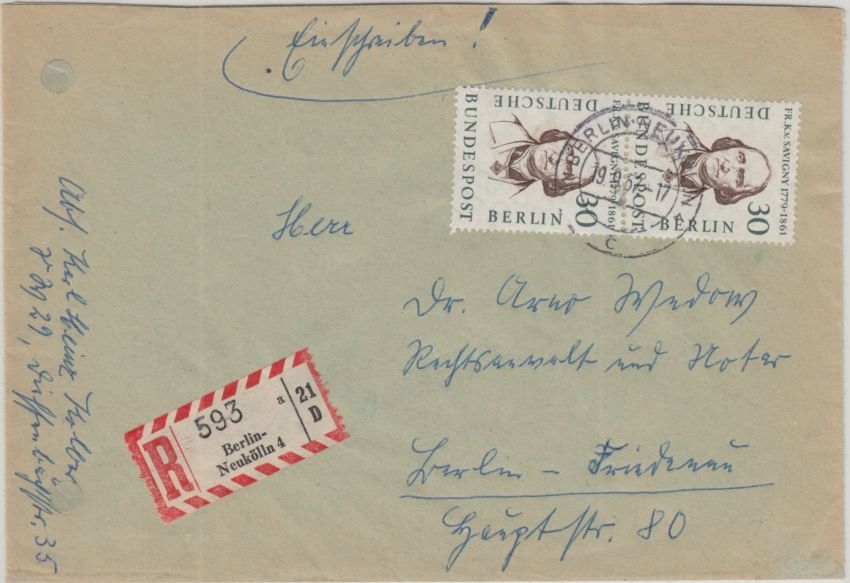 Einschreiben!
DEUTSCHE
BUNDESPOST
BERLIN
30
FR.K.v. SAVIGNY 1779-1861
DEUTSCHE
BUNDESPOST
BERLIN
30
FR.K.v. SAVIGNY 1779-1861
BERLIN-NEUKÖLLN
-17
C
Herr
Dr. Arno Wedow
Rechtsanwalt und Notar
Berlin - Friedenau
Hauptstr. 80
R
593
a
21
D
Berlin-
Neukölln 4
Abs. Karl Heinz
29, Dieffenbachstr. 35